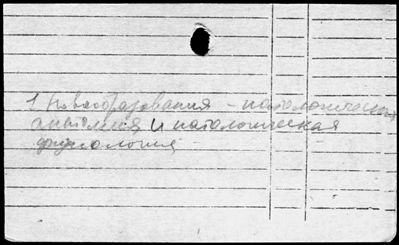 1 Новообразования - патологическая
анатомия и патологическая
физиология